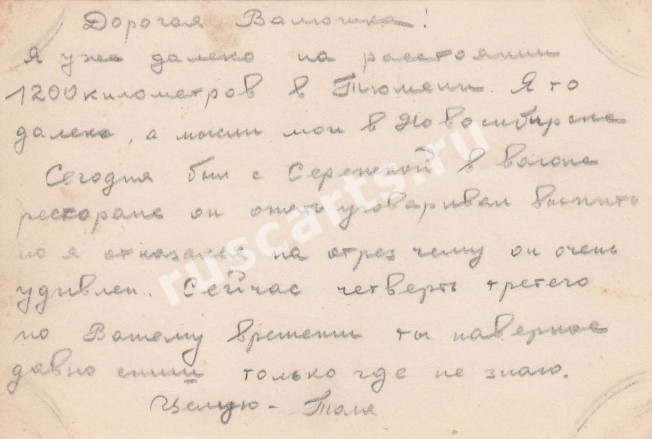 Дорогая Валюшка!
Я уже далеко на расстоянии
1200 километров в Тюмени. Я то
далеко, а мысли мои в Новосибирске
Сегодня был с Сережкой в вагоне
ресторане он опять уговаривал выпить
но я отказался на отрез чему он очень
удивлен. Сейчас четверть третего
по Вашему времени ты наверное
давно спиш только где не знаю.
Целую - Толя
ruscarts.ru